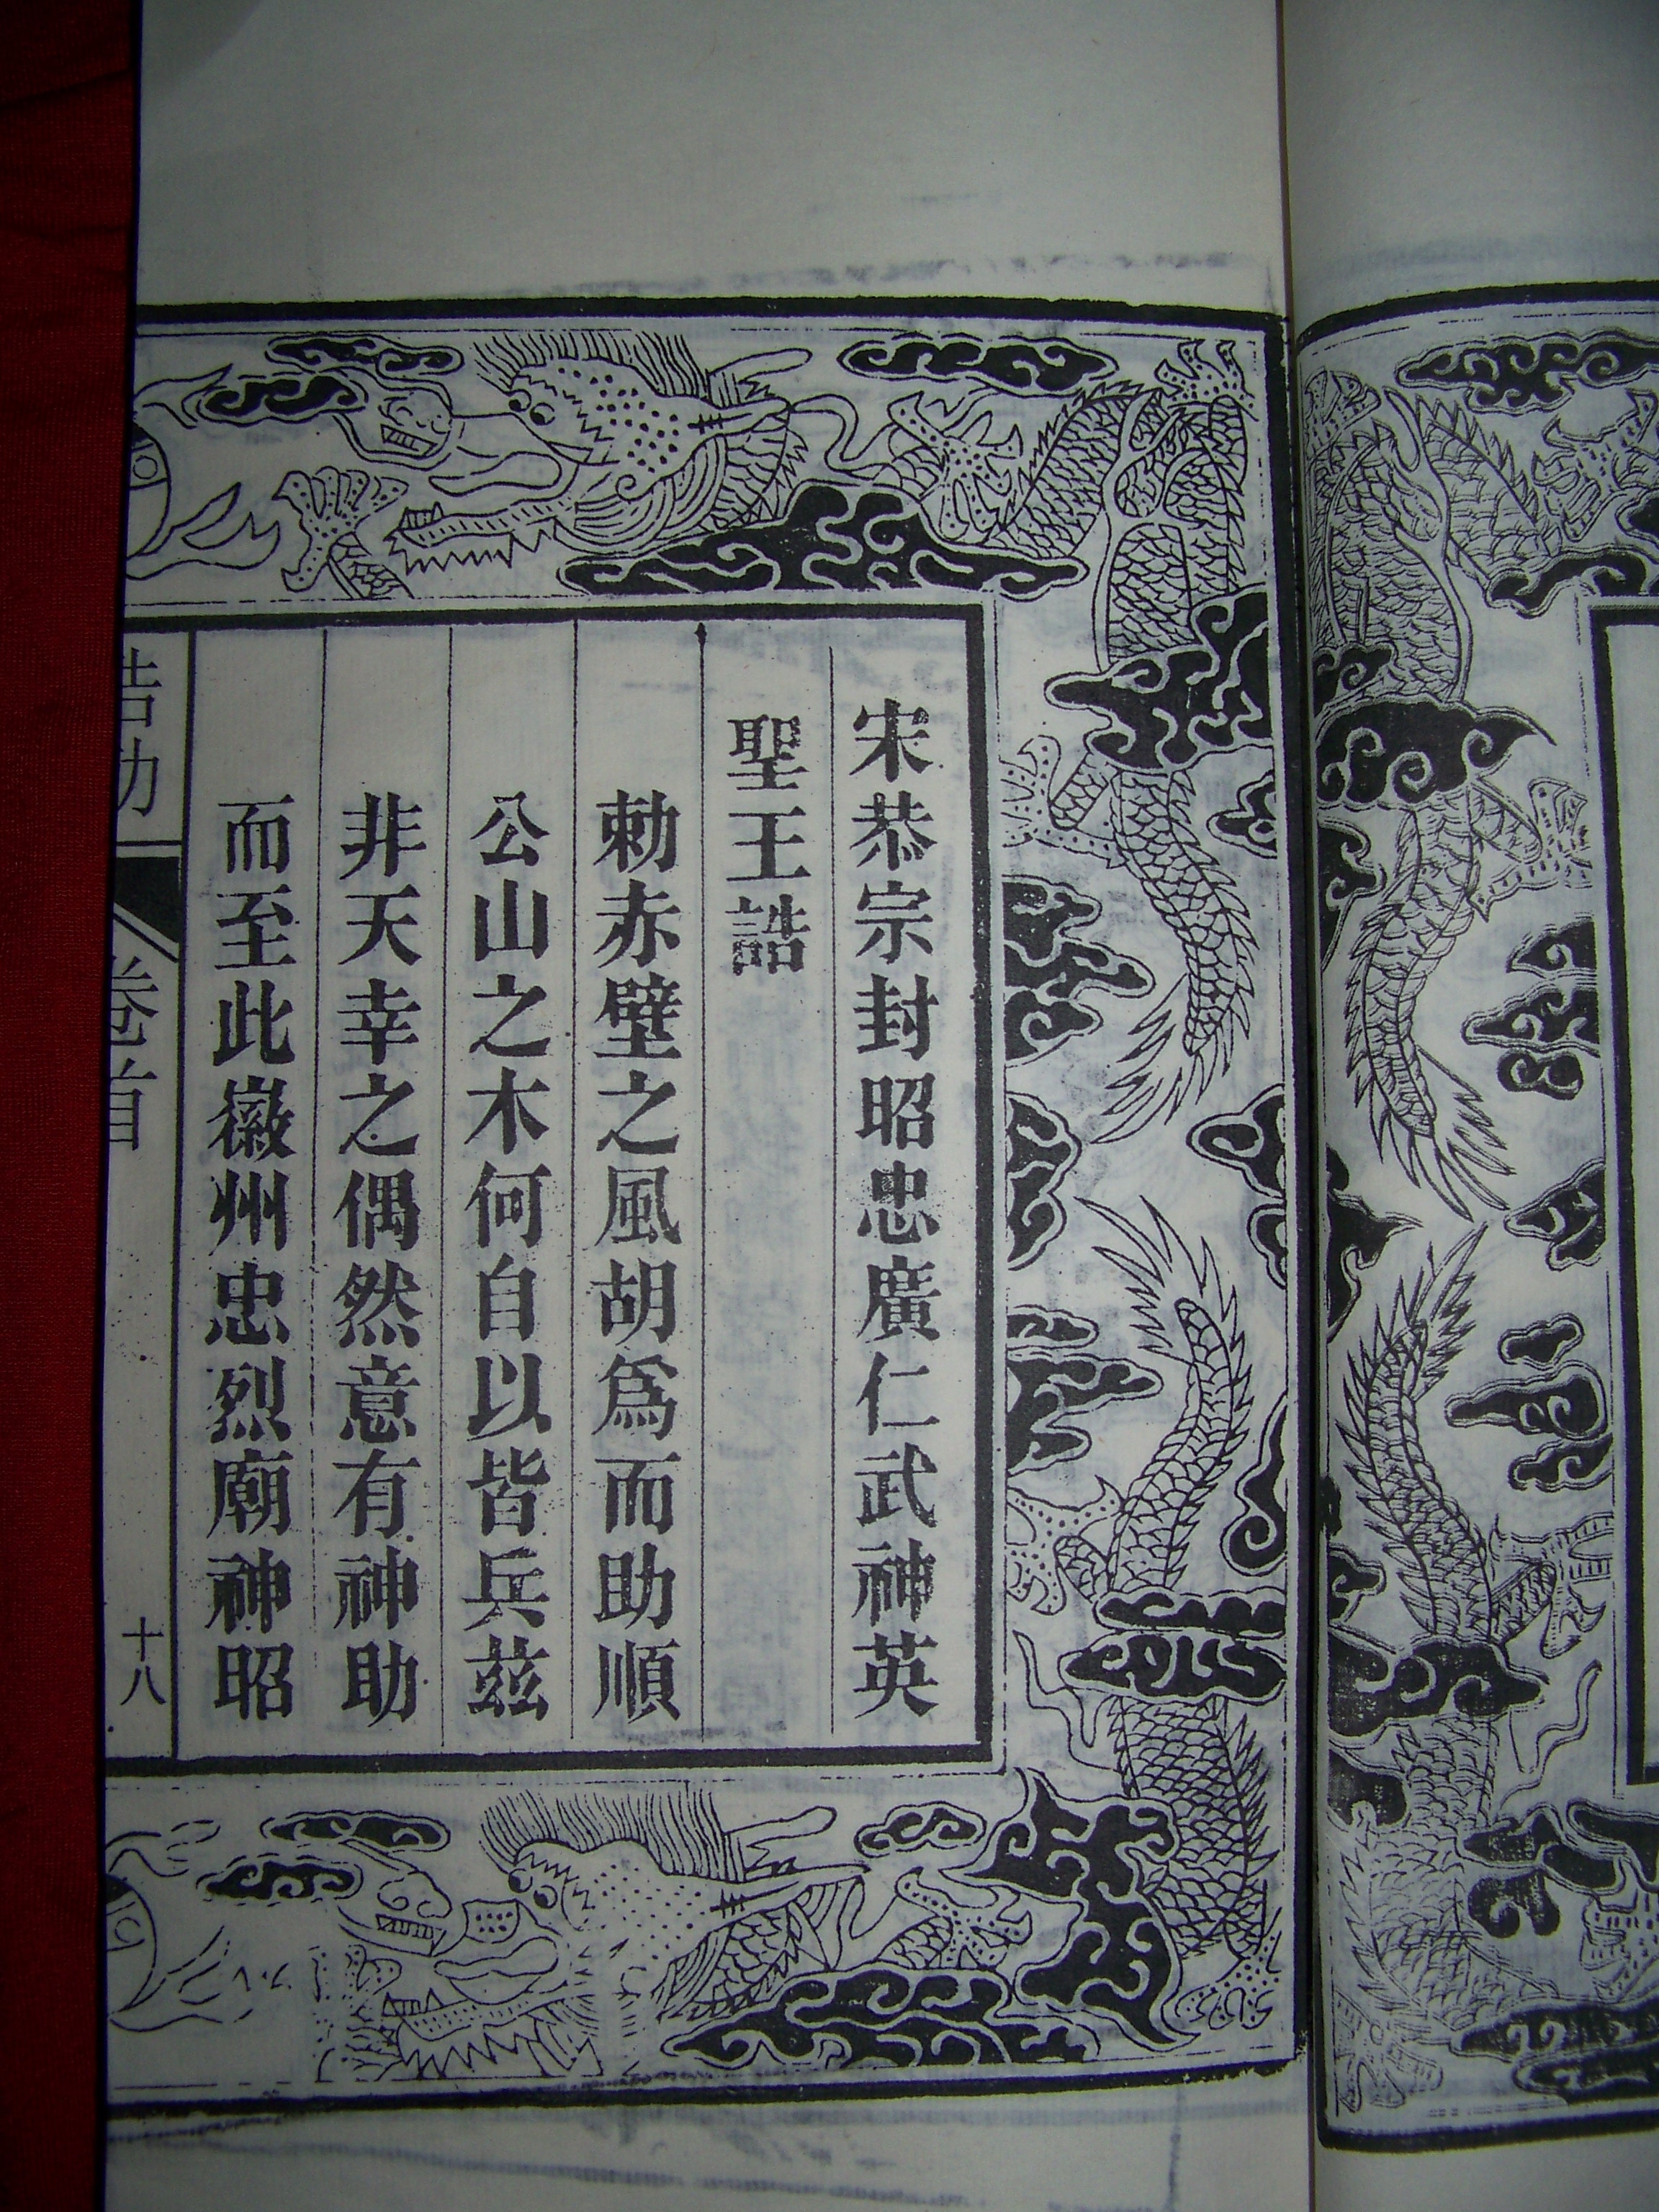 宋恭宗封昭忠廣仁武神英
聖王誥
勅赤壁之風胡爲而助順
公山之木何自以皆兵兹
非天幸之偶然意有神助
而至此徽州忠烈廟神昭
誥勅
卷首
十八